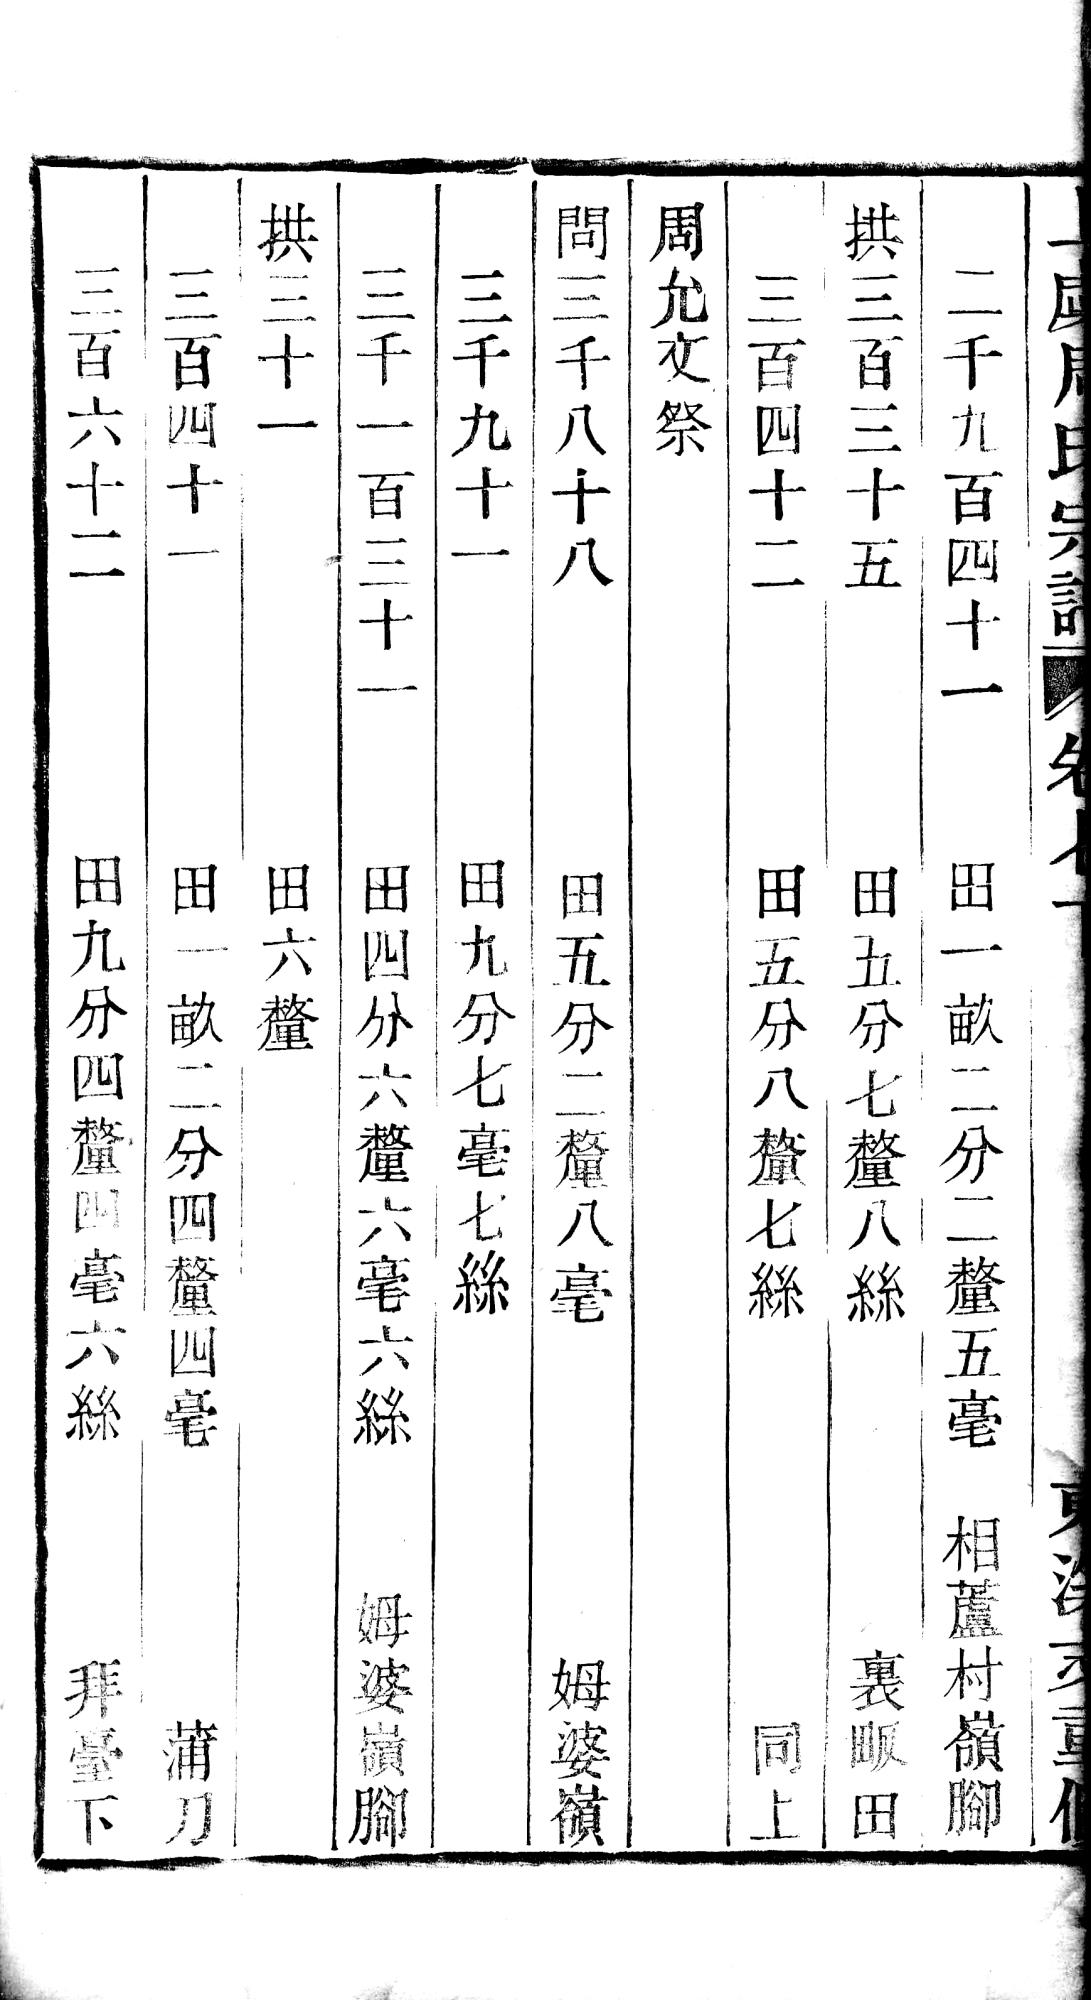 周氏宗譜 卷七十
二千九百四十一 田一畝二分二釐五毫 相蘆村嶺腳
拱三百三十五 田五分七釐八絲 裏畈田
三百四十二 田五分八釐七絲 同上
周允文祭
問三千八十八 田五分二釐八毫 姆婆嶺
三千九十一 田九分七毫七絲
三千一百三十一 田四分六釐六毫六絲 姆婆嶺腳
拱三十一 田六釐
三百四十一 田一畝二分四釐四毫 蒲刀
三百六十二 田九分四釐四毫六絲 拜臺下